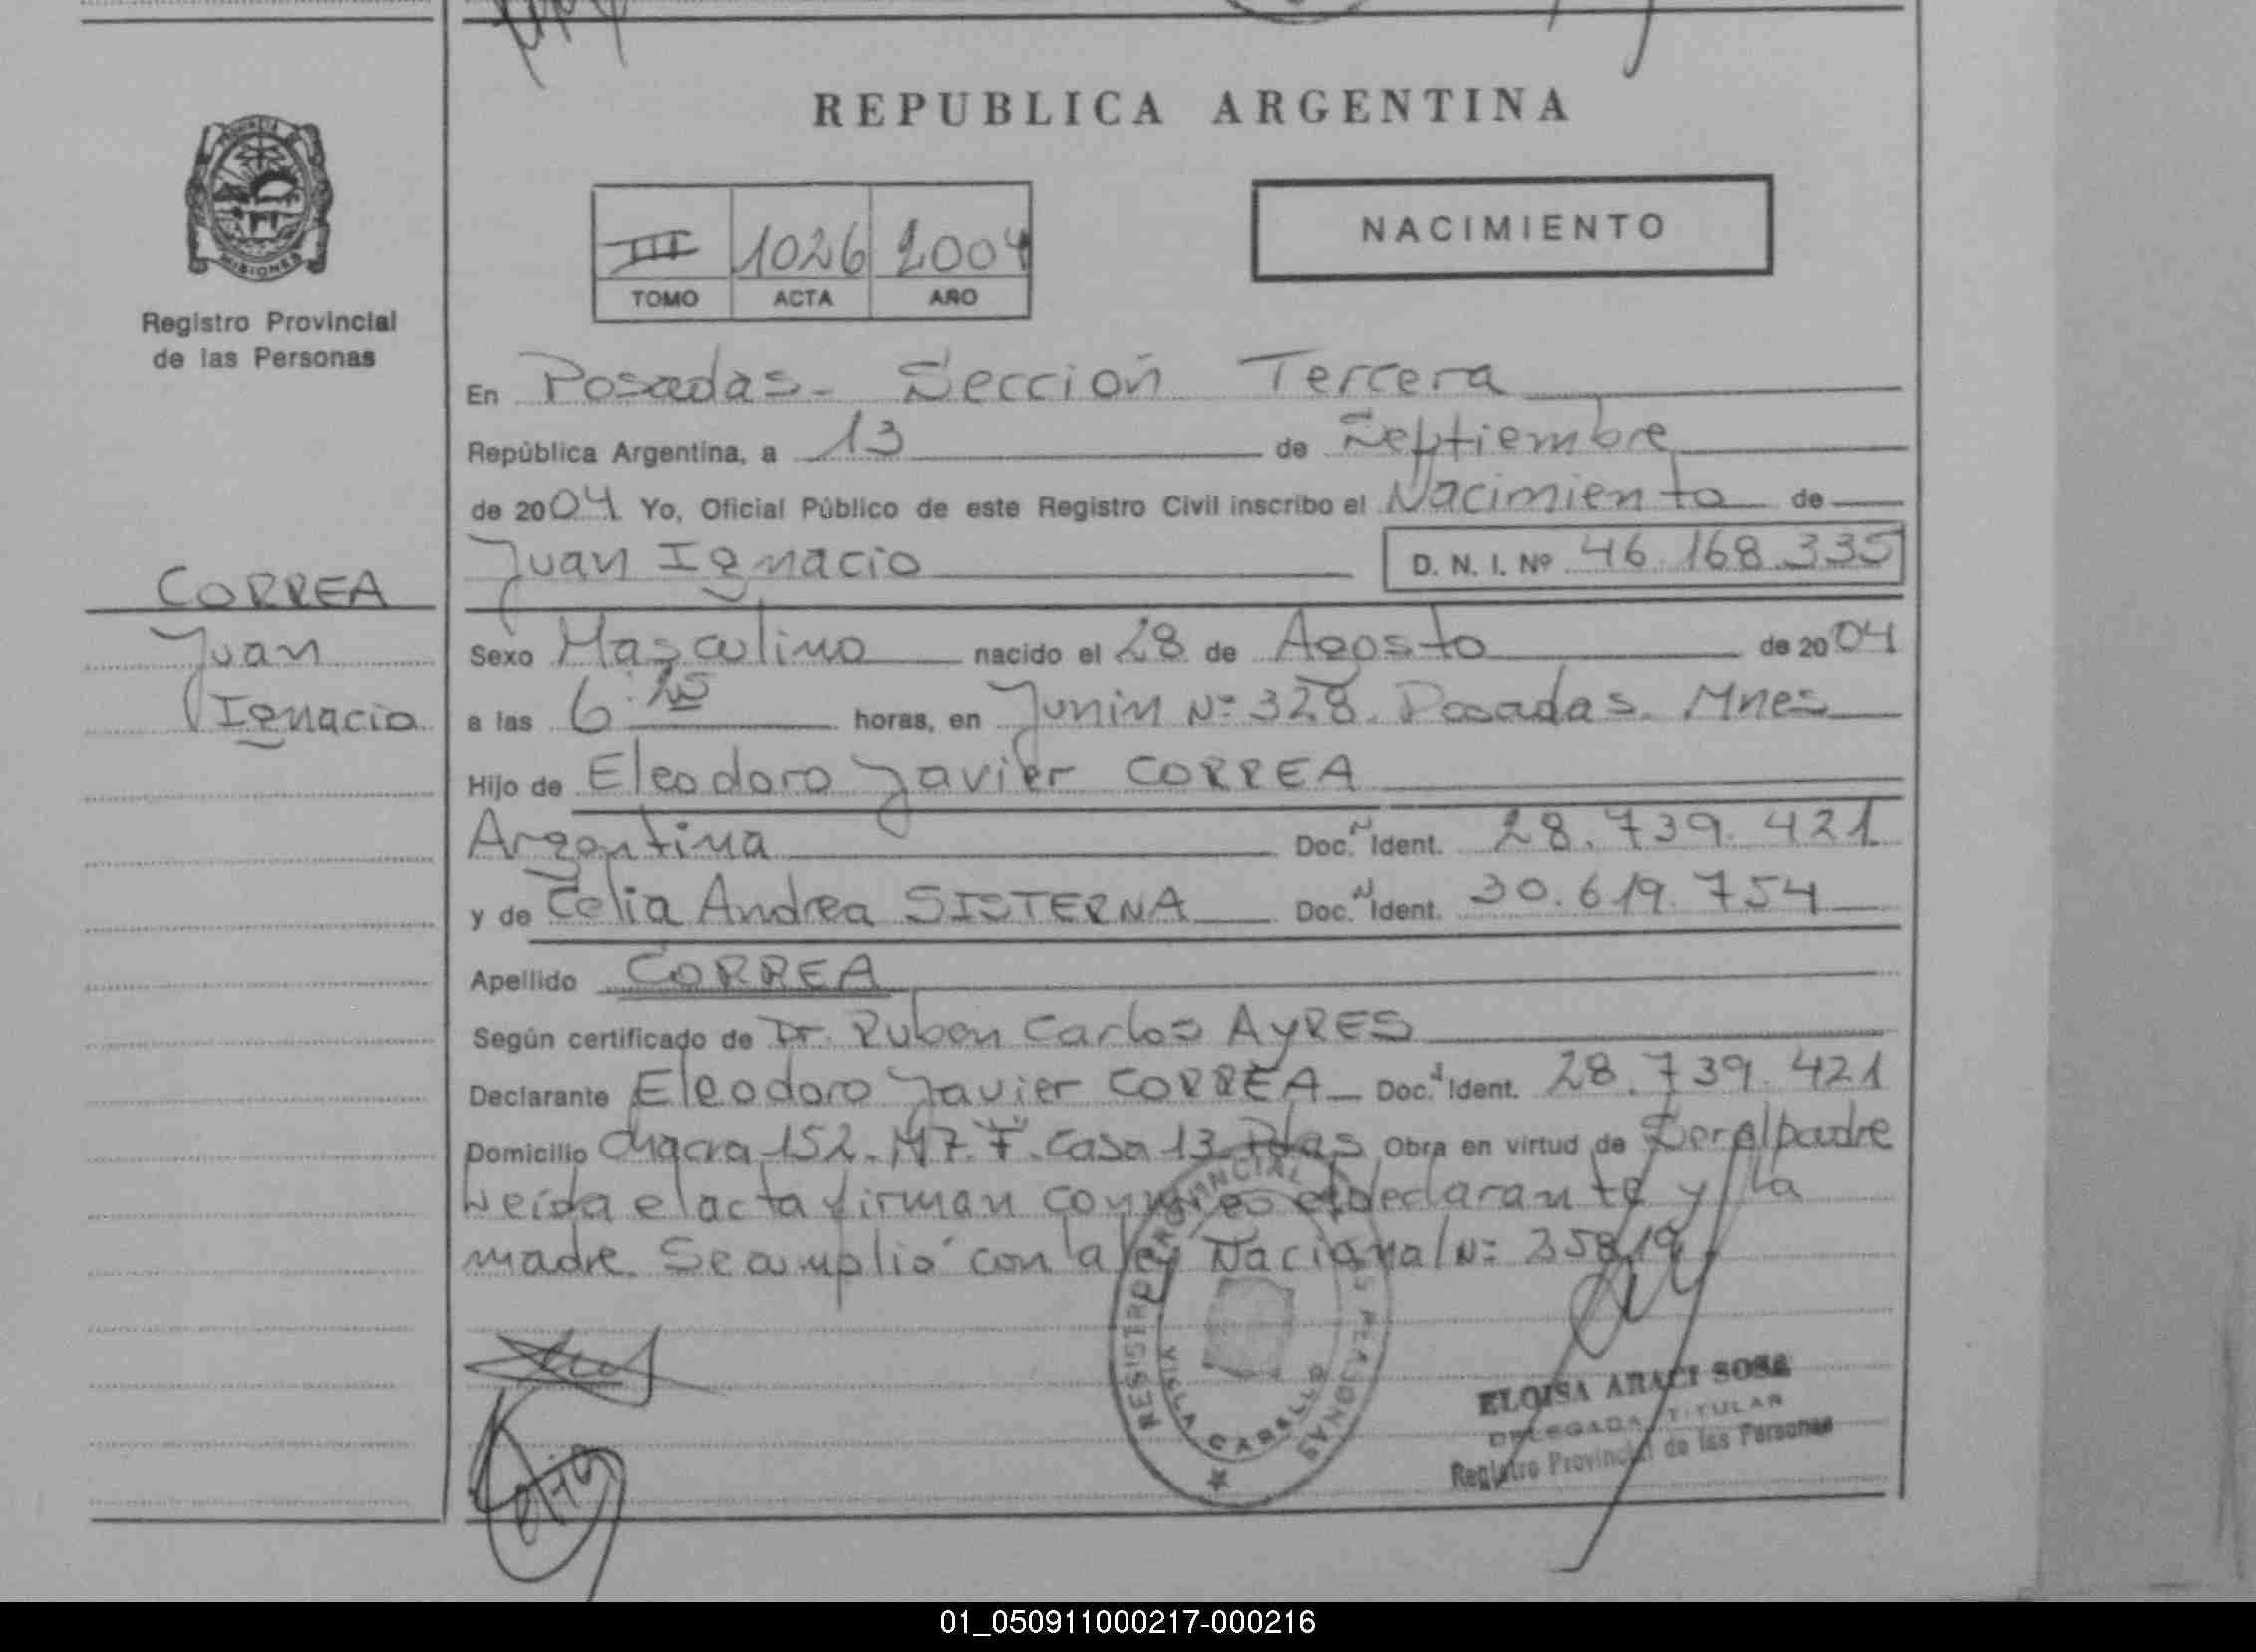 REPUBLICA ARGENTINA
PROVINCIA
MISIONES
Registro Provincial
de las Personas
III 1026 2004
TOMO ACTA AÑO
NACIMIENTO
En Posadas - Sección Tercera
República Argentina, a 13 de Septiembre
de 2004 Yo, Oficial Público de este Registro Civil inscribo el Nacimiento de
Juan Ignacio D. N. I. Nº 46.168.335
CORREA
Juan
Ignacio
Sexo Masculino nacido el 28 de Agosto de 2004
a las 6: horas, en Junin Nº 328. Posadas. Mnes
Hijo de Eleodoro Javier CORREA
Argentina Doc. N Ident. 28.739.421
y de Celia Andrea SISTERNA Doc. N Ident. 30.619.754
Apellido CORREA
Según certificado de Dr. Ruben Carlos AYRES
Declarante Eleodoro Javier CORREA Doc. Ident. 28.739.421
Domicilio Chacra 152. Casa 13 Pdas Obra en virtud de Ser el padre
Leída el acta firman conmigo el Declarante y la
madre. Se amplió con la ley Nacional Nº 25819
REGISTRO PROVINCIAL PERSONAS
VILLA CABELLO
ELOISA ARACI SOSA
DELEGADA TITULAR
Registro Provincial de las Personas
01_050911000217-000216